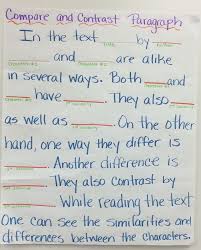 Compare and Contrast Paragraph
In the text ______ by ______
______ and ______ are alike
in several ways. Both ____ and
____ have ____. They also ____
as well as ____. On the other
hand, one way they differ is
____. Another difference is
____. They also contrast by
____. While reading the text
One can see the similarities and
differences between the characters.